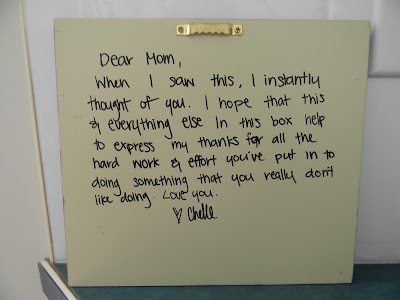 Dear Mom,
When I saw this, I instantly
thought of you. I hope that this
& everything else in this box help
to express my thanks for all the
hard work & effort you've put in to
doing something that you really don't
like doing. Love you.
♡ Chelle